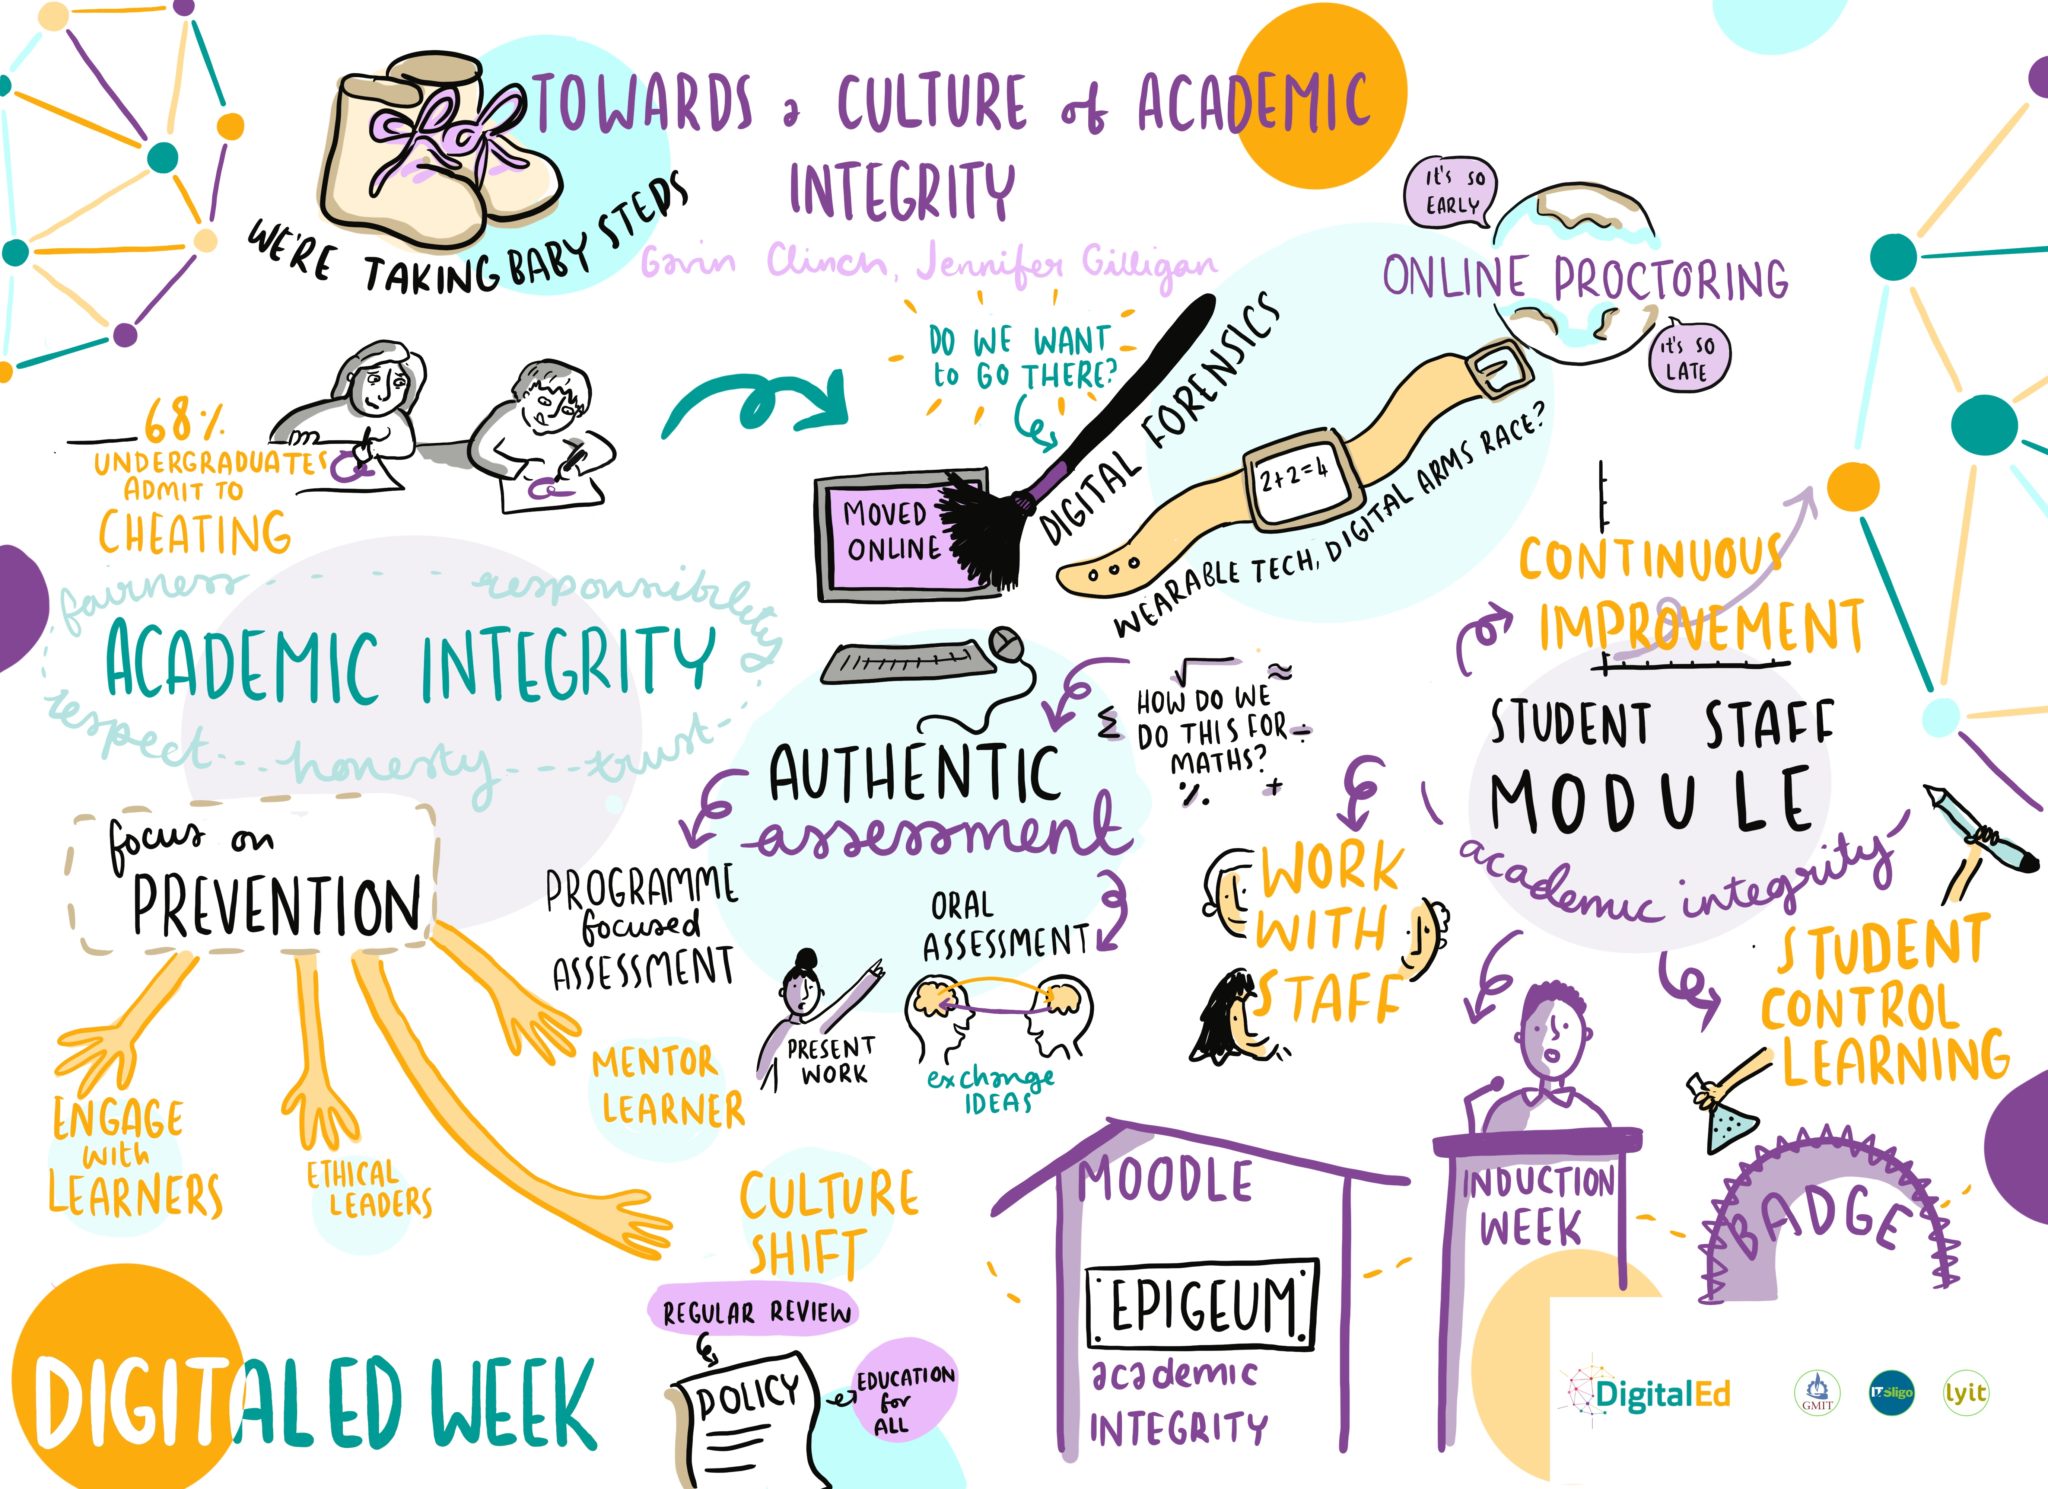 TOWARDS a CULTURE of ACADEMIC
INTEGRITY
Gavin Clinch, Jennifer Gilligan
WE'RE TAKING BABY STEPS
IT'S SO
EARLY
ONLINE PROCTORING
IT'S SO
LATE
DO WE WANT
to GO THERE?
DIGITAL FORENSICS
MOVED
ONLINE
2+2=4
WEARABLE TECH, DIGITAL ARMS RACE?
68%
UNDERGRADUATES
ADMIT TO
CHEATING
fairness
responsibility
ACADEMIC INTEGRITY
respect
honesty
trust
focus on
PREVENTION
ENGAGE
with
LEARNERS
ETHICAL
LEADERS
MENTOR
LEARNER
CULTURE
SHIFT
AUTHENTIC
assessment
HOW DO WE
DO THIS FOR
MATHS?
PROGRAMME
focused
ASSESSMENT
PRESENT
WORK
ORAL
ASSESSMENT
exchange
IDEAS
CONTINUOUS
IMPROVEMENT
STUDENT STAFF
MODULE
academic integrity
WORK
WITH
STAFF
STUDENT
CONTROL
LEARNING
INDUCTION
WEEK
BADGE
MOODLE
EPIGEUM
academic
INTEGRITY
REGULAR REVIEW
POLICY
EDUCATION
for
ALL
DIGITAL ED WEEK
DigitalEd
GMIT
IT Sligo
lyit